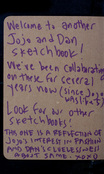 Welcome to another
Jojo and Dan
sketchbook!
We've been collaborating
on these for several
years now (since Jojo
was
Look for our other
sketchbooks!
THIS ONE IS A REFLECTION OF
JOJO'S INTEREST IN FASHION
AND DAN'S CLUELESSNESS
ABOUT SAME. - XOXO